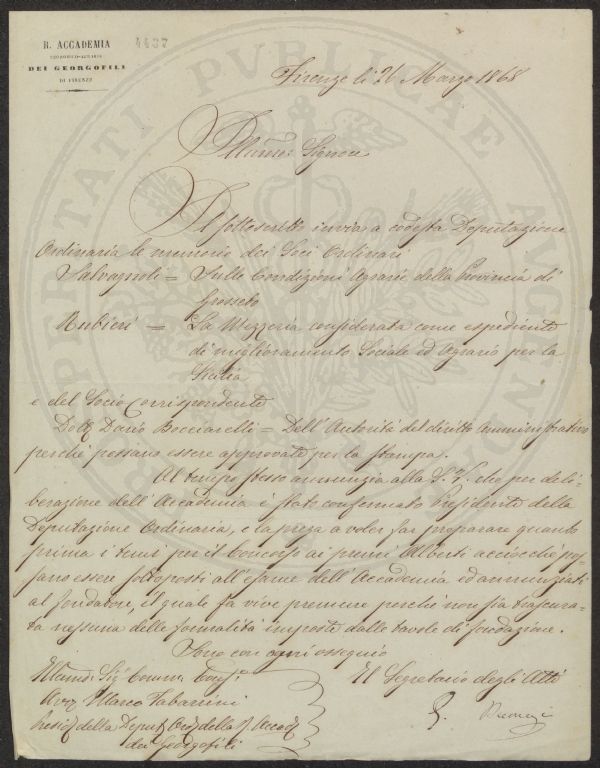 R. ACCADEMIA
ECONOMICO-AGRARIA
DEI GEORGOFILI
DI FIRENZE
4437
Firenze li 26 Marzo 1868
Illmo: Signore
Il sottoscritto invia a codesta Deputazione
Ordinaria le memorie dei Soci Ordinari
Salvagnoli = Sulle Condizioni Agrarie della Provincia di
Grosseto
Rubieri = La Mezzeria considerata come espediente
di miglioramento Sociale ed Agrario per la
Sicilia
e del Socio Corrispondente
Dott Dario Bocciarelli = Dell'Autorità del diritto Amministrativo
perché possano essere approvate per la stampa.
Al tempo stesso annunzia alla S. V. che per deli-
berazione dell'Accademia è stato confermato Presidente della
Deputazione Ordinaria, e la prega a voler far preparare quanto
prima i temi per il Concorso ai premi Alberti acciocché pos-
sano essere sottoposti all'esame dell'Accademia ed annunziati
al fondatore, il quale fa vive premure perché non sia trascura-
ta nessuna delle formalità imposte dalle tavole di fondazione.
Sono con ogni ossequio
Illmo: Sig Comm: Cons
Avv Marco Tabarrini
Presid della Deput Ord della R Accad
dei Georgofili
Il Segretario degli Atti
PROSPERITATI PUBLICAE AUGENDAE